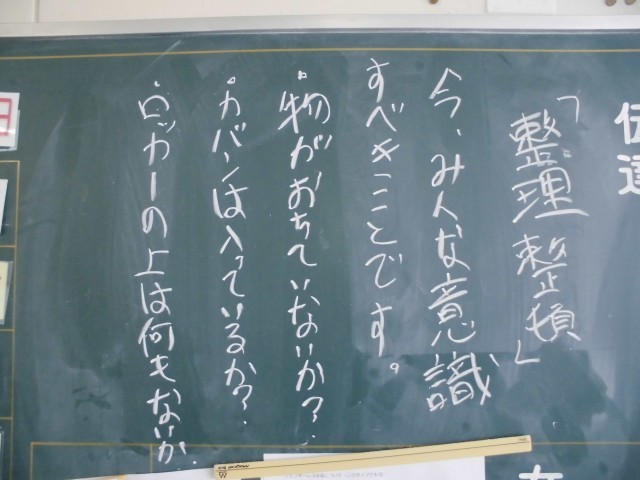 伝達
「整理整頓」
今、みんな意識
すべきことです。
・物がおちていないか？
・カバンは入っているか？
・ロッカーの上は何もないか